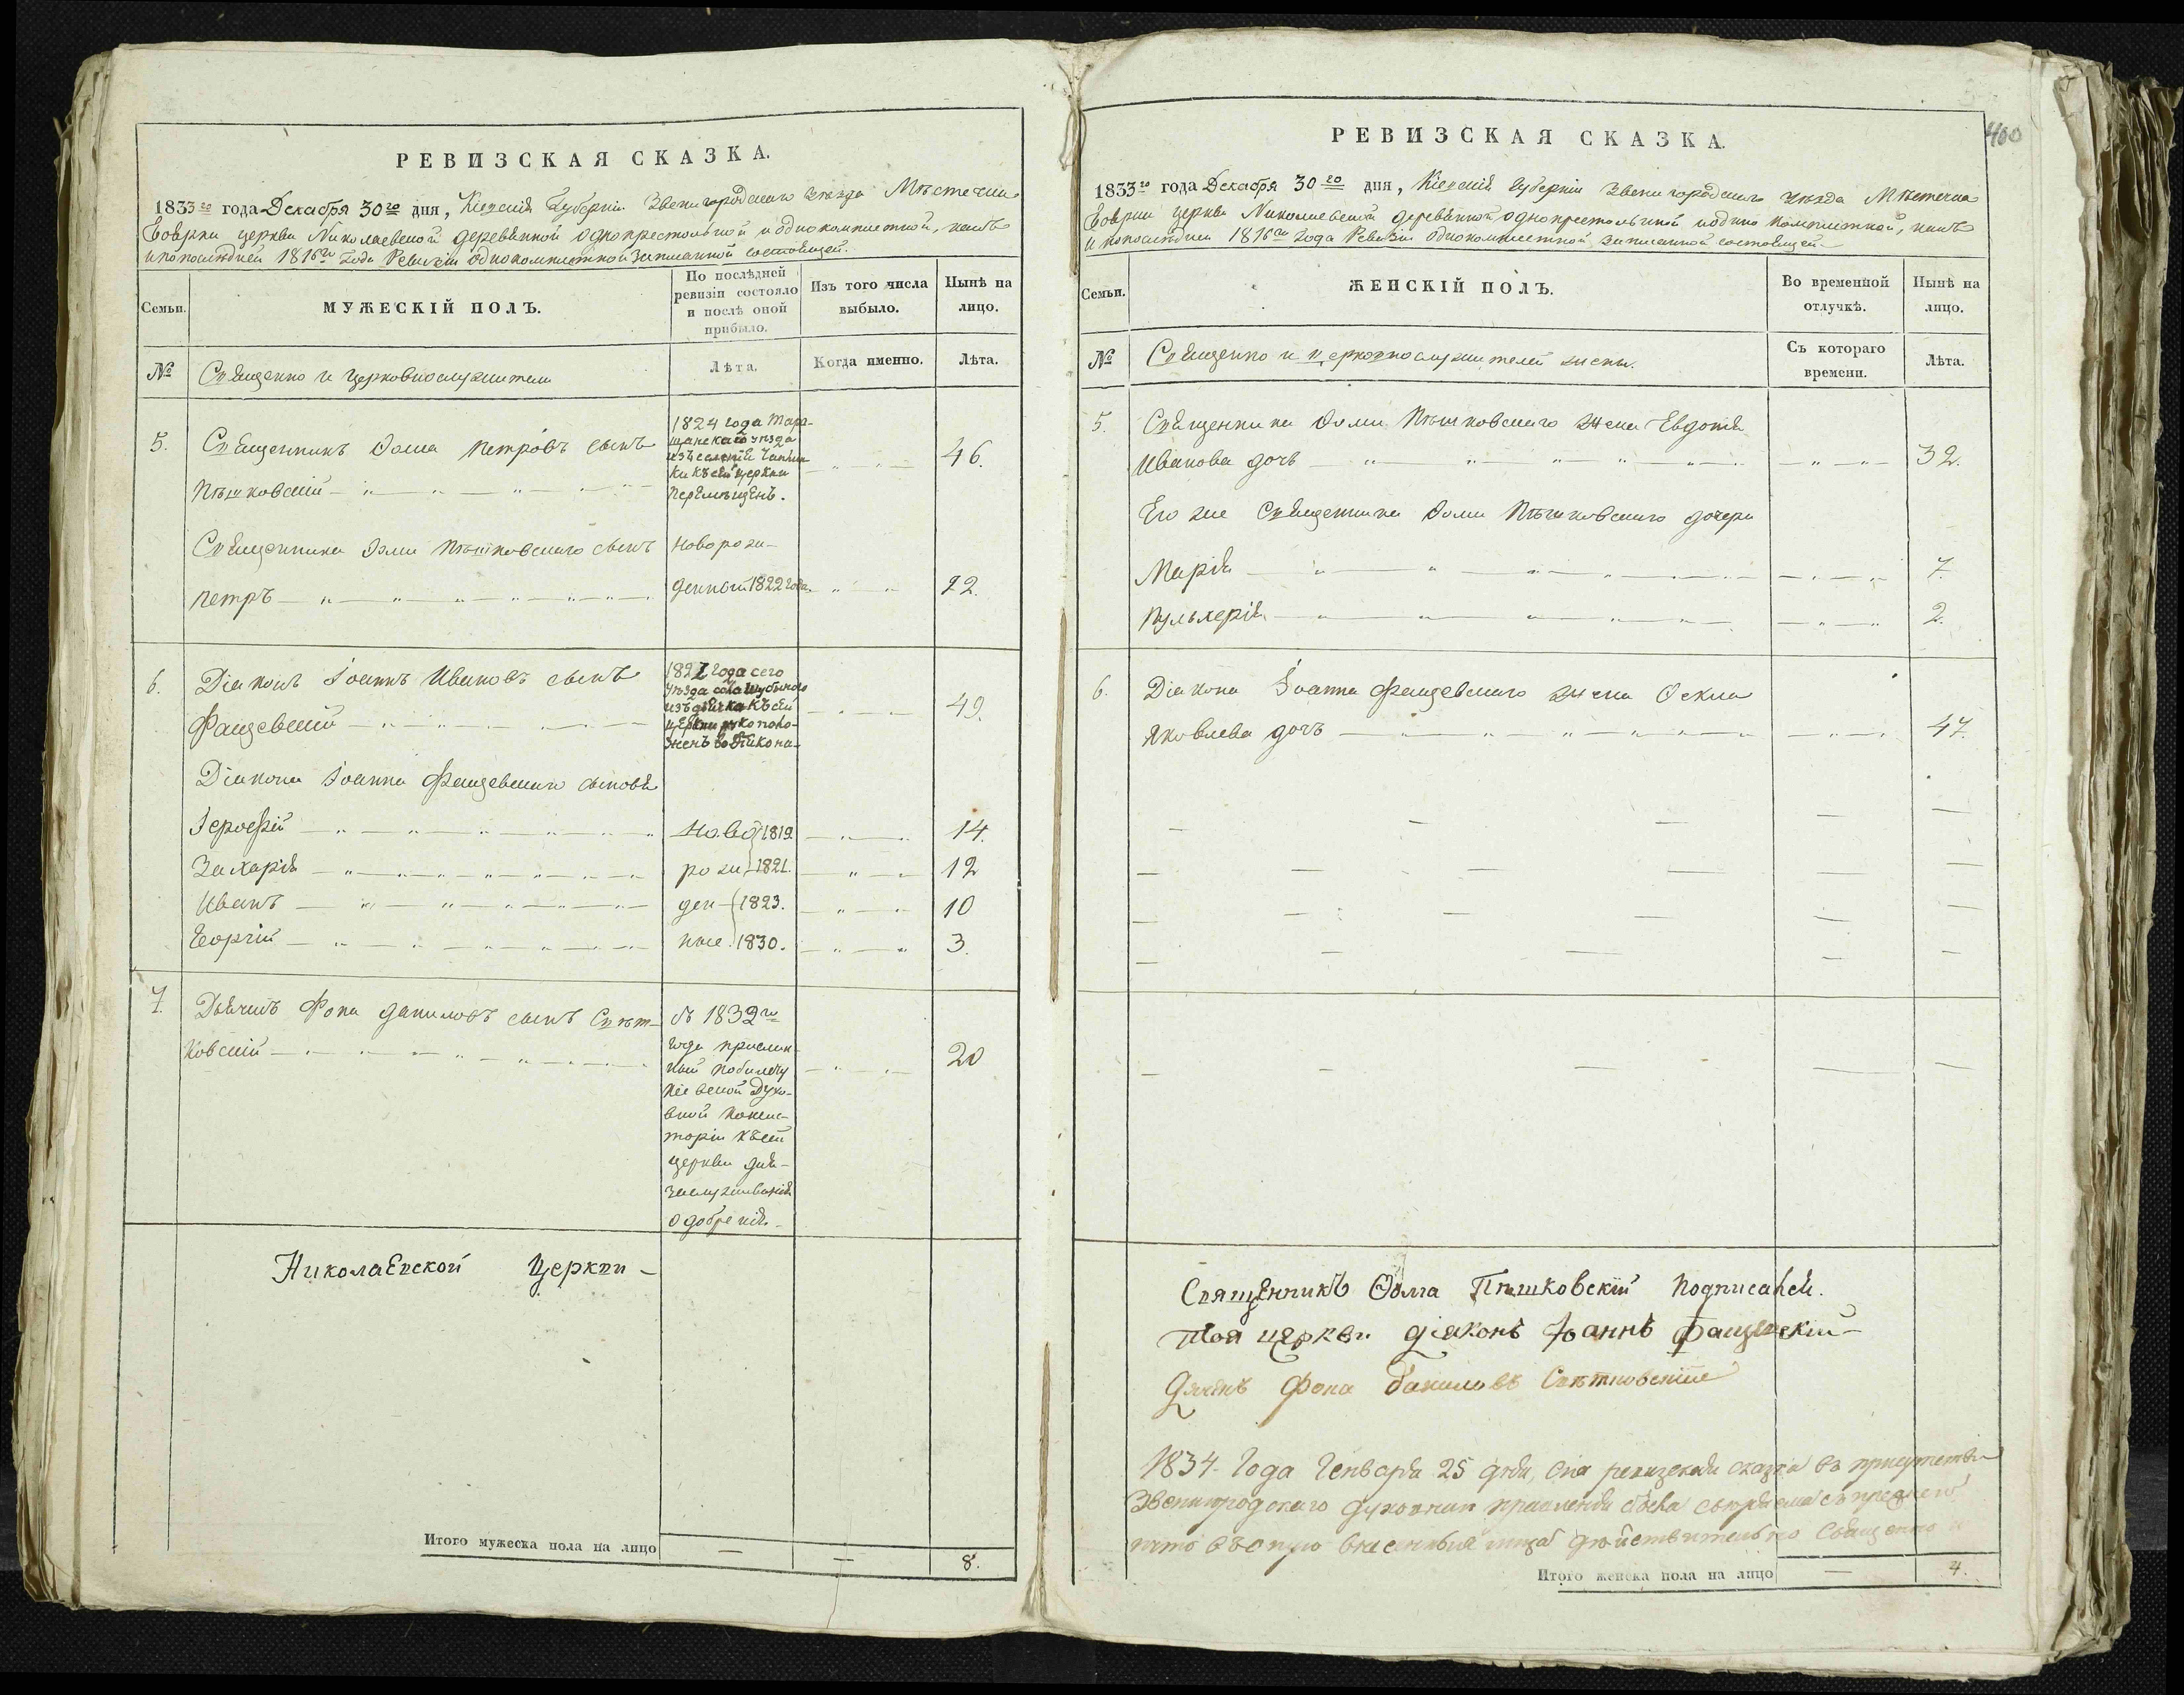 РЕВИЗСКАЯ СКАЗКА.
1833го года Декабря 30го дня, Кіевскія Губерніи Звенигородскаго уѣзда Мѣстечка
Боярки церкви Николаевской деревянной однопрестольной и однокомплетной, какъ
и по послѣдней 1816го года Ревизіи однокомплетной записанной состоящей.
Семьи.
МУЖЕСКІЙ ПОЛЪ.
По послѣдней
ревизіи состояло
и послѣ оной
прибыло.
Изъ того числа
выбыло.
Нынѣ на
лицо.
№
Священно и церковнослужители
Лѣта.
Когда именно.
Лѣта.
5.
Священникъ Ѳома Петровъ сынъ
Пѣшковскій
1824 года Тара-
щанскаго уѣзда
изъ селенія
ки къ сей церкви
перемѣщенъ.
46.
Священника Ѳомы Пѣшковскаго сынъ
Петръ
новорож-
денной 1822 года
12.
6.
Діаконъ Іоаннъ Ивановъ сынъ
Фащевскій
1827 года сего
уѣзда села
изъ дьячка къ сей
церкви рукополо-
женъ во діакона
49.
Діакона Іоанна Фащевскаго сыновя
Іероѳей
ново 1819
14.
Захарія
рож 1821.
12
Иванъ
ден 1823.
10
Георгій
ные 1830.
3.
7.
Дьячекъ Фока Даниловъ сынъ Свѣт-
ковскій
съ 1832го
года прислан-
ный по билету
Кіевской Духо-
вной Консис-
торіи къ сей
церкви для
заслуживанія
одобренія
20
Николаевской Церкви
Итого мужеска пола на лицо
8.
400
РЕВИЗСКАЯ СКАЗКА.
1833го года Декабря 30го дня, Кіевскія Губерніи Звенигородскаго уѣзда Мѣстечка
Боярки церкви Николаевской деревянной, однопрестольной и однокомплетной, какъ
и по послѣдней 1816го года Ревизіи однокомплетной записанной состоящей
Семьи.
ЖЕНСКІЙ ПОЛЪ.
Во временной
отлучкѣ.
Нынѣ на
лицо.
№
Священно и церковнослужителей жены.
Съ котораго
времени.
Лѣта.
5.
Священника Ѳомы Пѣшковскаго жена Евдотія
Иванова дочь
32.
Его же Священника Ѳомы Пѣшковскаго дочери
Марія
7.
Пульхерія
2.
6.
Діакона Іоанна Фащевскаго жена Оскла
Яковлева дочъ
47.
Священникъ Ѳома Пѣшковскій подписалсѧ.
Тоя церкви діаконъ Іоаннъ Фащевскій
Дячекъ Фока Даниловъ Свѣтковскій
1834. Года Генваря 25 дня, сія ревизская сказка въ присутствіи
Звенигродскаго духовнаго правленія
что въ оную внесенныя лица дѣйствительно Священно и
Итого женска пола на лицо
4.